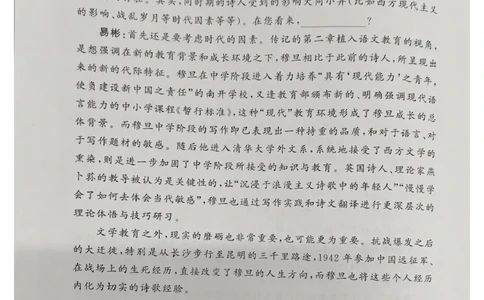 性。其实,同时期的诗人受到的影响大同小异(比如西方现代主义
的影响、战乱岁月等时代因素等等)。在您看来,____________?
易彬:首先还是要考虑时代的因素。传记的第二章植入语文教育的视角,
是想强调在新的教育背景和成长环境之下,穆旦相比于此前的诗人,所呈现出
来的新的代际特征。穆旦在中学阶段进入着力培养“具有‘现代能力’之青年,
使负建设新中国之责任”的南开学校,又逢教育部颁布新的、明确强调现代语
言能力的中小学课程《暂行标准》,这种“现代”教育环境形成了穆旦成长的总
体背景。而穆旦中学阶段的写作即已表现出一种持重的品质,和对于语言、对
于写作题材的敏感。随后他进入清华大学外文系,系统地接受了西方文学的
熏染,则是进一步加固了中学阶段所接受的知识与教育。英国诗人、理论家燕
卜荪的教导被认为是关键性的,让“沉浸于浪漫主义诗歌中的年轻人”“慢慢学
会了如何去体会当代敏感”,穆旦也通过写作实践和诗文翻译进行更深层次的
理论体悟与技巧研习。
文学教育之外,现实的磨砺也非常重要,也可能更为重要。抗战爆发之后
的大迁徙,特别是从长沙步行至昆明的三千里路途,1942年参加中国远征军、
在战场上的生死经历,直接改变了穆旦的人生方向,而穆旦也将这些个人经历
内化为切实的诗歌经验。